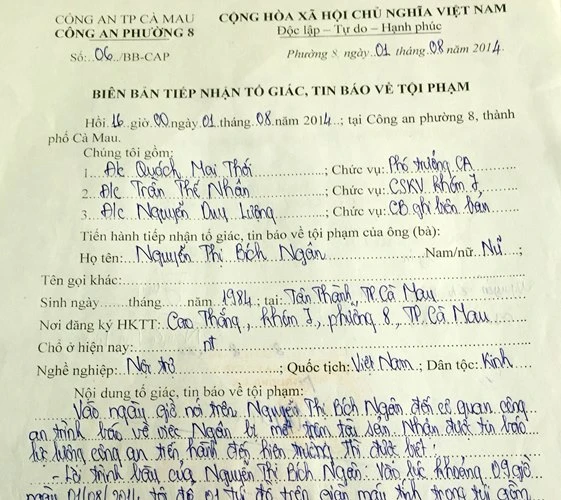 CÔNG AN TP CÀ MAU
CÔNG AN PHƯỜNG 8
Số:..06../BB-CAP
CỘNG HÒA XÃ HỘI CHỦ NGHĨA VIỆT NAM
Độc lập – Tự do – Hạnh phúc
Phường 8, ngày..01 tháng.08 năm 2014.
BIÊN BẢN TIẾP NHẬN TỐ GIÁC, TIN BÁO VỀ TỘI PHẠM
Hồi.16..giờ.00.ngày.01.tháng.08.năm 2014..; tại Công an phường 8, thành
phố Cà Mau.
Chúng tôi gồm:
1...Đ/c Quách Mai Thới...; Chức vụ: Phó trưởng CA
2...Đ/c Trần Thế Nhân...; Chức vụ: CSKV khóm 7
3...Đ/c Nguyễn Duy Lường...; Chức vụ: CB ghi biên bản
Tiến hành tiếp nhận tố giác, tin báo về tội phạm của ông (bà):
Họ tên:..Nguyễn Thị Bích Ngân...Nam/nữ. Nữ...;
Tên gọi khác:
Sinh ngày......tháng......năm 1984.; tại: Tân Thành, TP. Cà Mau
Nơi đăng ký HKTT: Cao Thắng, khóm 7, phường 8, TP. Cà Mau
Chỗ ở hiện nay: nt
Nghề nghiệp: Nội trợ...; Quốc tịch: Việt Nam.; Dân tộc: Kinh
Nội dung tố giác, tin báo về tội phạm:
Vào ngày giờ nói trên Nguyễn Thị Bích Ngân đến cơ quan công
an trình báo về việc Ngân bị mất trộm tài sản. Nhận được tin báo
lực lượng công an tiến hành đến hiện trường thì được biết:
- Lời trình bày của Nguyễn Thị Bích Ngân: Vào lúc khoảng 09 giờ
ngày 01/08/2014